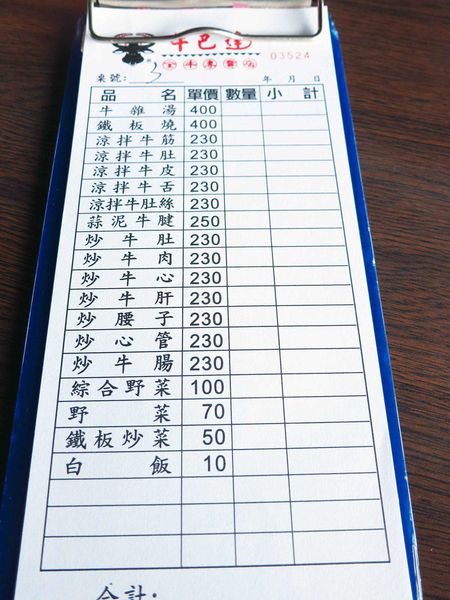 牛巴達
全牛專賣店 03524
桌號: 3 年 月 日
品名 單價 數量 小計
牛雜湯 400
鐵板燒 400
涼拌牛筋 230
涼拌牛肚 230
涼拌牛皮 230
涼拌牛舌 230
涼拌牛肚絲 230
蒜泥牛腱 250
炒牛肚 230
炒牛肉 230
炒牛心 230
炒牛肝 230
炒腰子 230
炒心管 230
炒牛腸 230
綜合野菜 100
野菜 70
鐵板炒菜 50
白飯 10
合計: